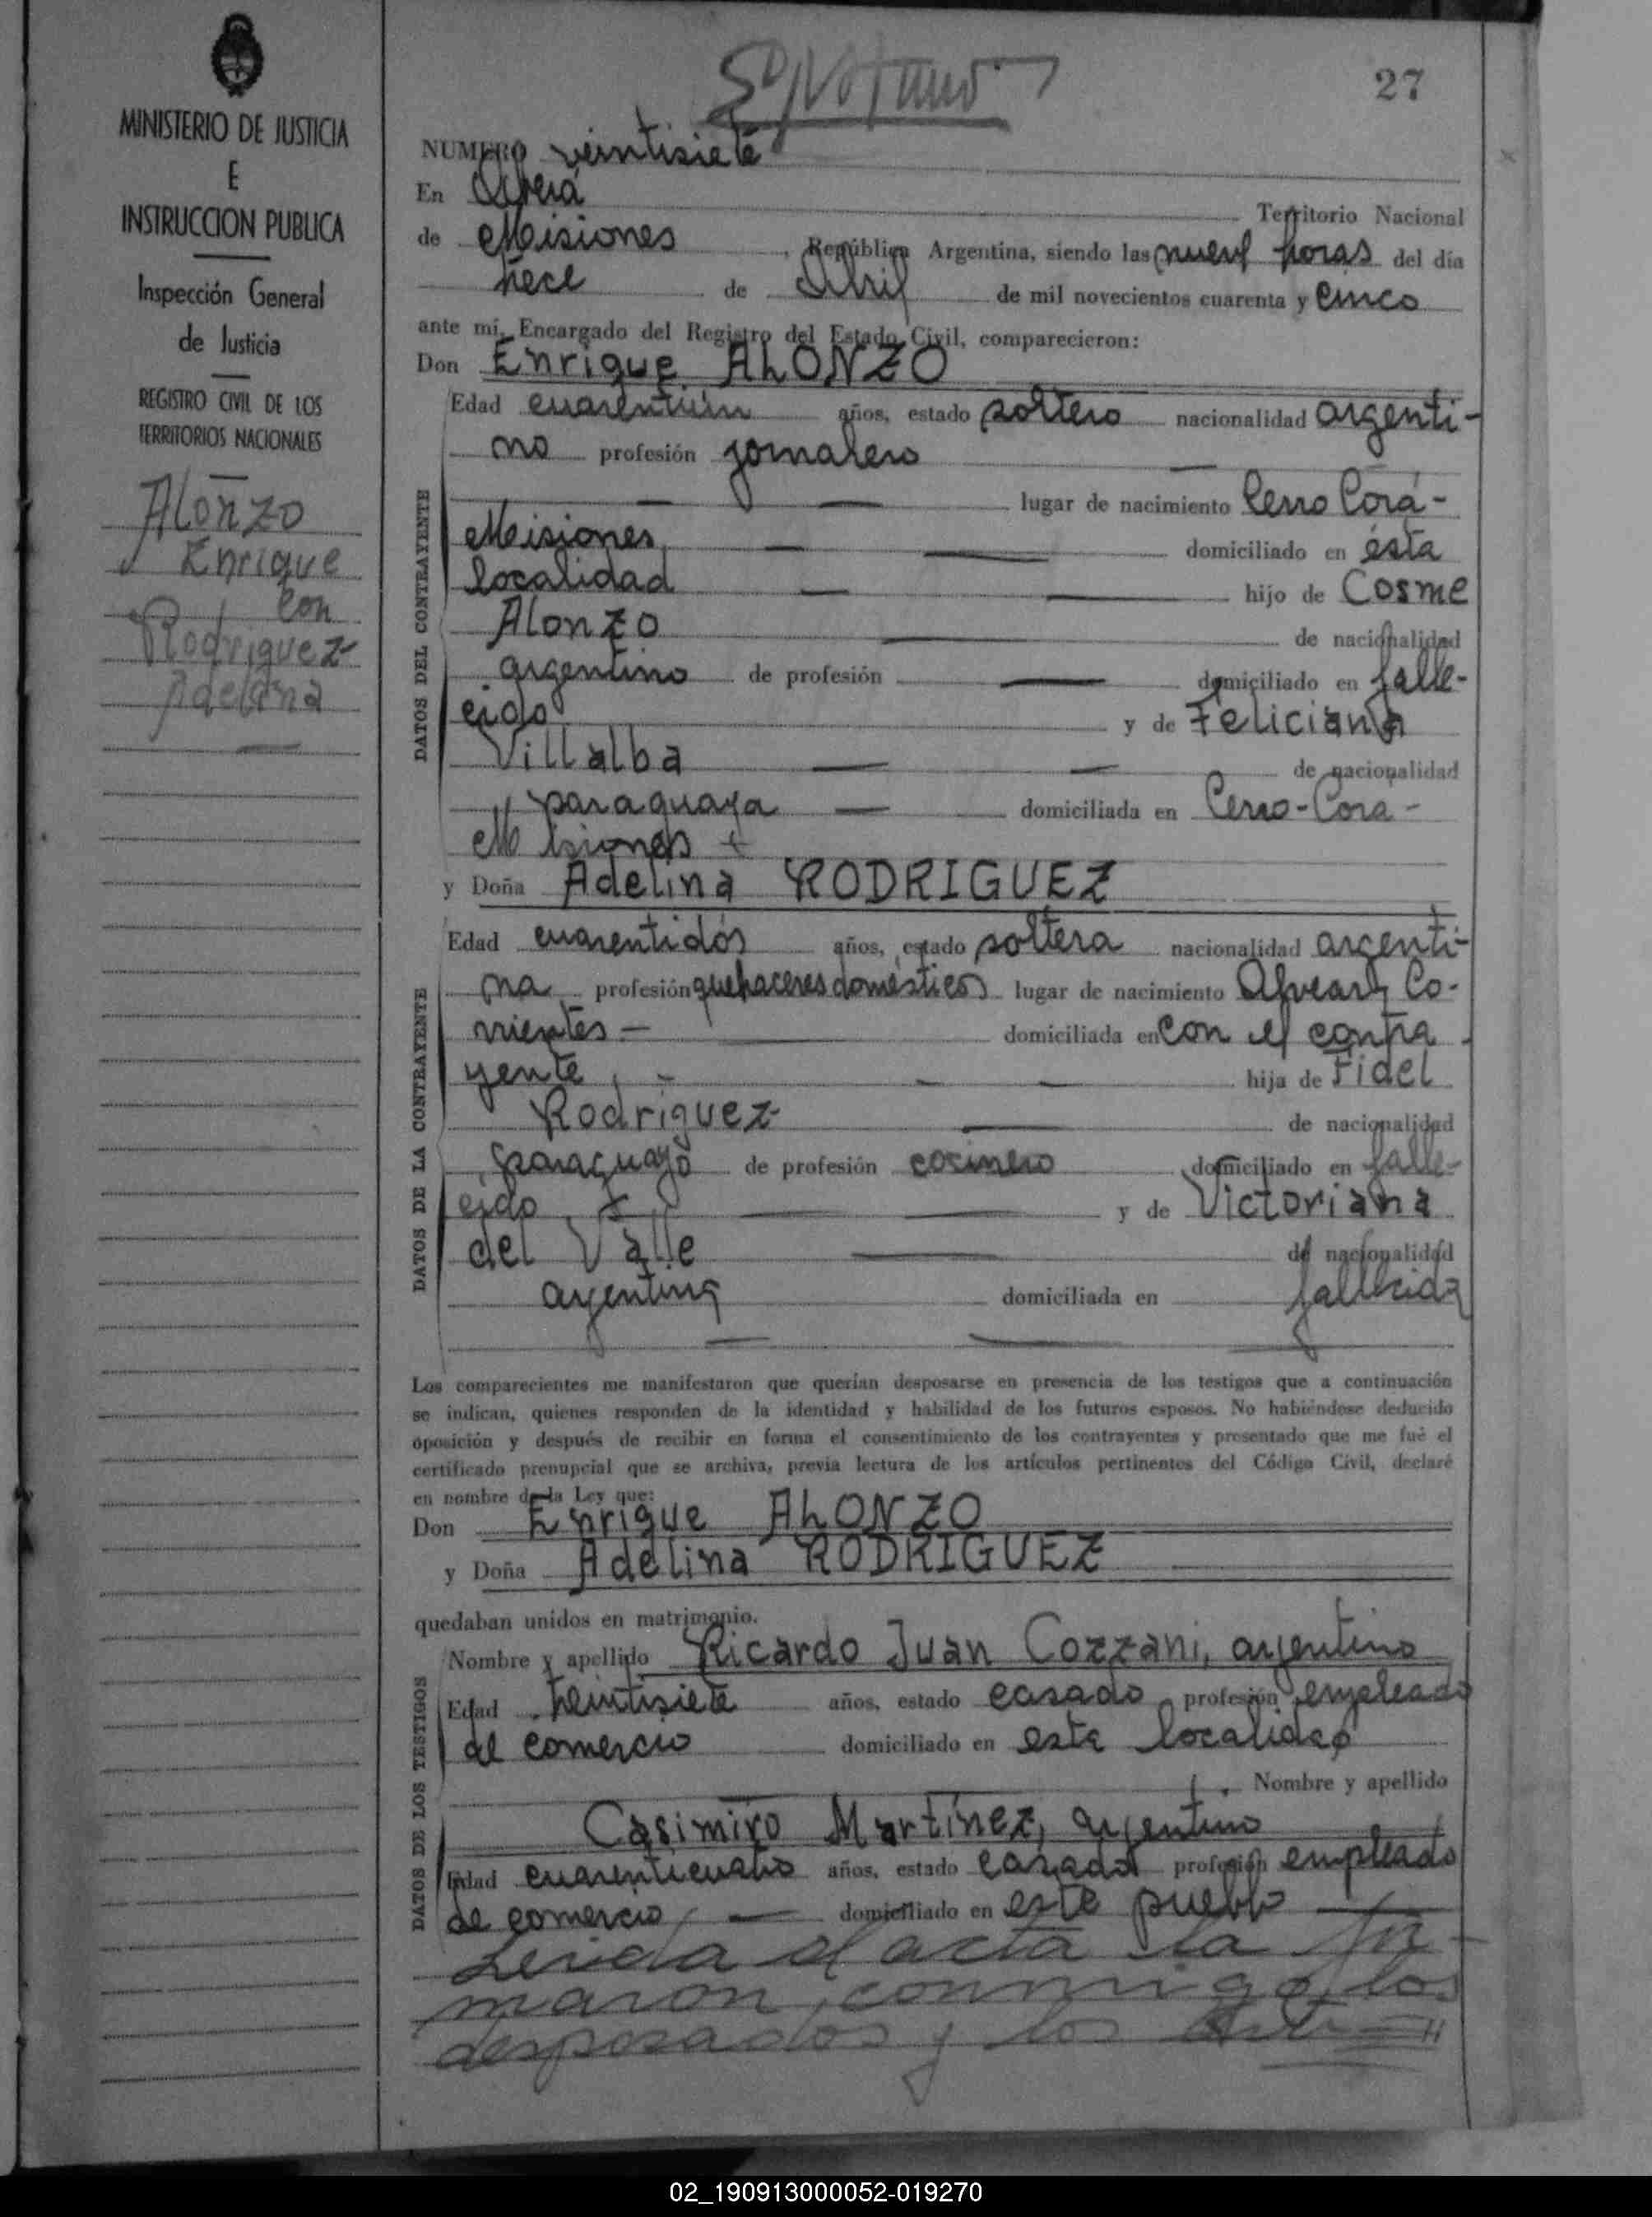 27
MINISTERIO DE JUSTICIA
E
INSTRUCCION PUBLICA
Inspección General
de Justicia
REGISTRO CIVIL DE LOS
TERRITORIOS NACIONALES
Alonzo
Enrique
con
Rodriguez
Adelina
NUMERO veintisiete
En Oberá Territorio Nacional
de Misiones, República Argentina, siendo las nueve horas del día
trece de Abril de mil novecientos cuarenta y cinco
ante mí, Encargado del Registro del Estado Civil, comparecieron:
Don Enrique ALONZO
DATOS DEL CONTRAYENTE
Edad cuarentiún años, estado soltero nacionalidad argenti-
no profesión jornalero
lugar de nacimiento Cerro Corá-
Misiones, domiciliado en ésta
localidad hijo de Cosme
Alonzo de nacionalidad
argentino de profesión — domiciliado en falle-
cido y de Feliciana
Villalba de nacionalidad
paraguaya domiciliada en Cerro-Cora-
Misiones
y Doña Adelina RODRIGUEZ
DATOS DE LA CONTRAYENTE
Edad cuarentidós años, estado soltera nacionalidad argenti-
na profesión quehaceres domésticos lugar de nacimiento Alvear, Co-
rrientes — domiciliada en con el contra
yente, hija de Fidel
Rodriguez de nacionalidad
paraguayo de profesión cocinero domiciliado en falle-
cido y de Victoriana
del Valle de nacionalidad
argentina domiciliada en fallecida
Los comparecientes me manifestaron que querían desposarse en presencia de los testigos que a continuación
se indican, quienes responden de la identidad y habilidad de los futuros esposos. No habiéndose deducido
oposición y después de recibir en forma el consentimiento de los contrayentes y presentado que me fué el
certificado prenupcial que se archiva, previa lectura de los artículos pertinentes del Código Civil, declaré
en nombre de la Ley que:
Don Enrique ALONZO
y Doña Adelina RODRIGUEZ
quedaban unidos en matrimonio.
DATOS DE LOS TESTIGOS
Nombre y apellido Ricardo Juan Cozzani, argentino
Edad veintisiete años, estado casado profesión empleado
de comercio domiciliado en esta localidad
Nombre y apellido
Casimiro Martínez, argentino
Edad cuarenticuatro años, estado casado profesión empleado
de comercio, — domiciliado en este pueblo
Leida el acta la fir-
maron, conmigo, los
desposados y los
02_190913000052-019270